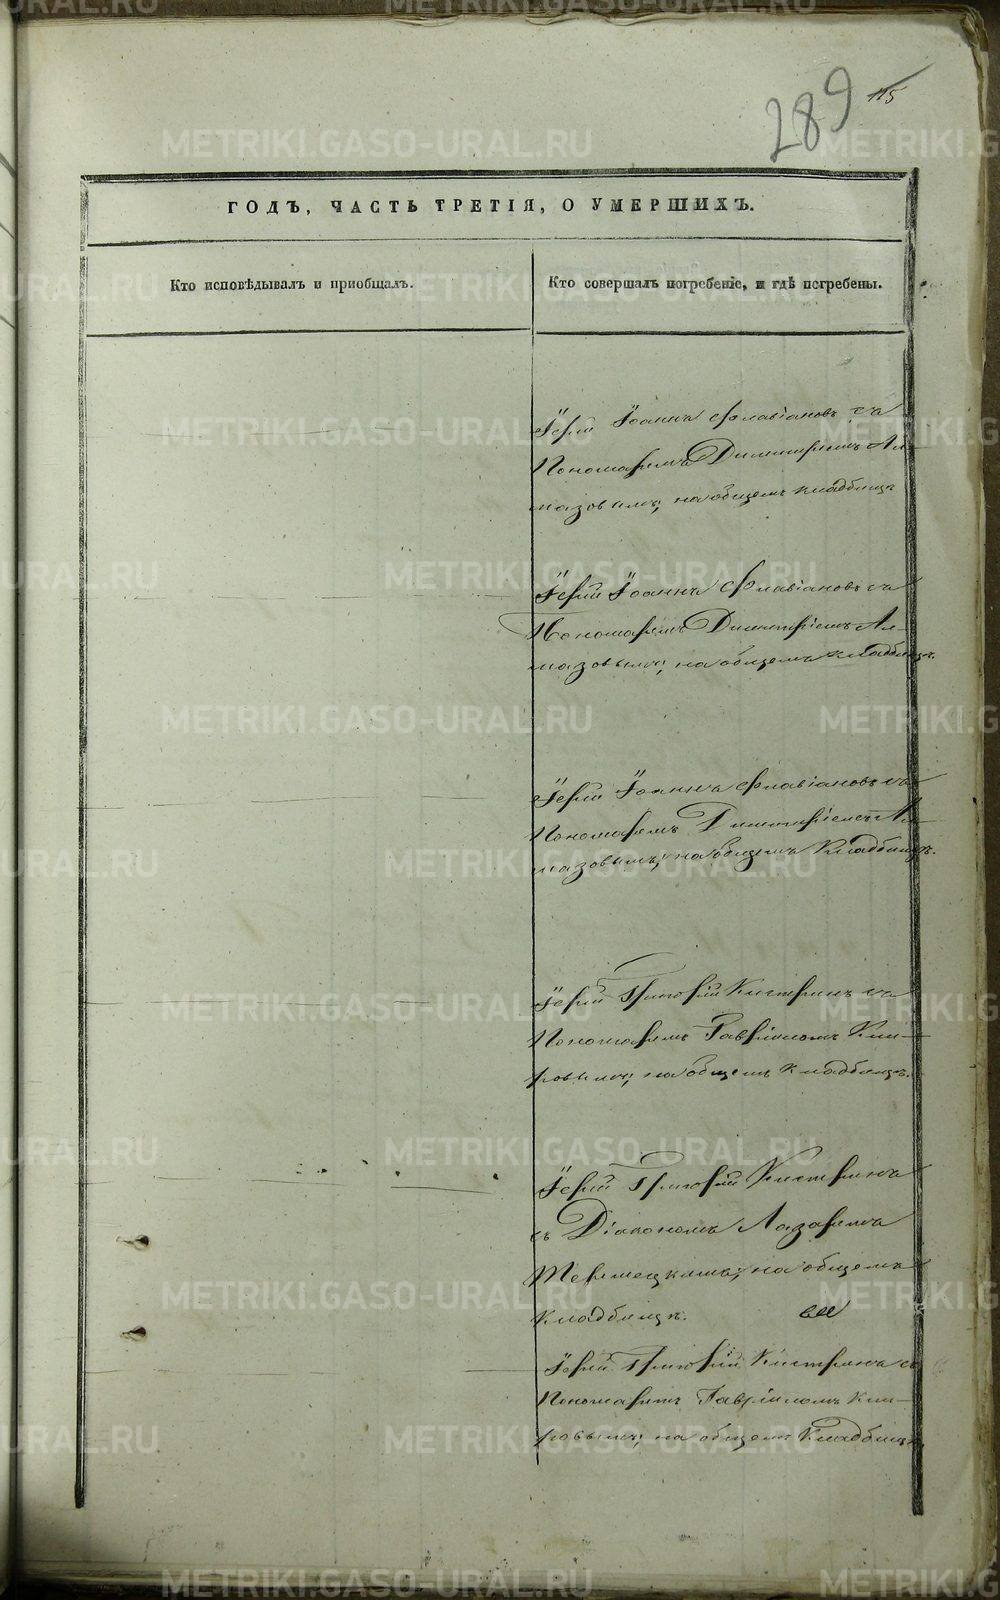 289 115
ГОДЪ, ЧАСТЬ ТРЕТІЯ, О УМЕРШИХЪ.
Кто исповѣдывалъ и приобщалъ.
Кто совершалъ погребеніе, и гдѣ погребены.
Іерей Іоаннъ Флавіановъ съ
Пономаремъ Димитріемъ Ал-
мазовымъ, на общемъ кладбищѣ
Іерей Іоаннъ Флавіановъ съ
Пономаремъ Димитріемъ Ал-
мазовымъ, на общемъ кладбищѣ.
Іерей Іоаннъ Флавіановъ съ
Пономаремъ Димитріемъ Ал-
мазовымъ, на общемъ Кладбищѣ.
Іерей Григорій Кистринъ съ
Пономаремъ Гавріиломъ
на общемъ кладбищѣ.
Іерей Григорій Кистринъ
съ Діакономъ Лазаремъ
на общемъ
кладбищѣ.
Іерей Григорій Кистринъ съ
Пономаремъ Гавріиломъ
на общемъ Кладбищѣ
METRIKI.GASO-URAL.RU